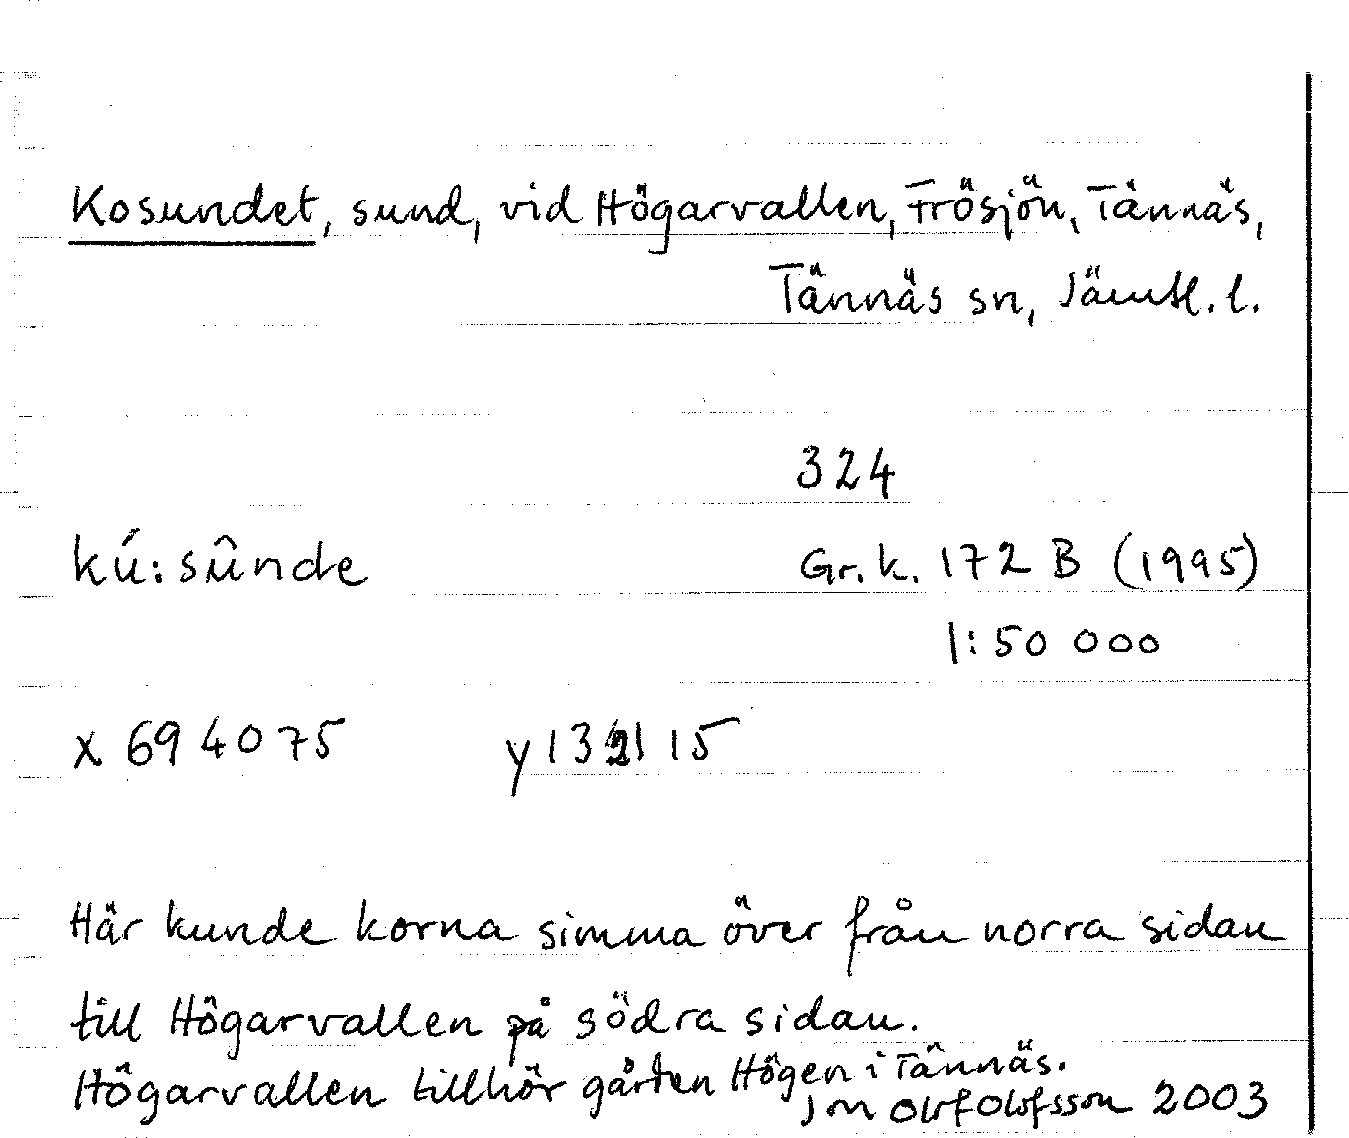 Kosundet, sund, vid Högarvallen, Frösjön, Tännäs,
Tännäs sn, Jämtl. l.
324
kú: sûnde Gr. k. 172 B (1995)
1:50 000
x 694075 y 132115
Här kunde korna simma över från norra sidan
till Högarvallen på södra sidan.
Högarvallen tillhör gården Högen i Tännäs.
Jon Olof Olofsson 2003